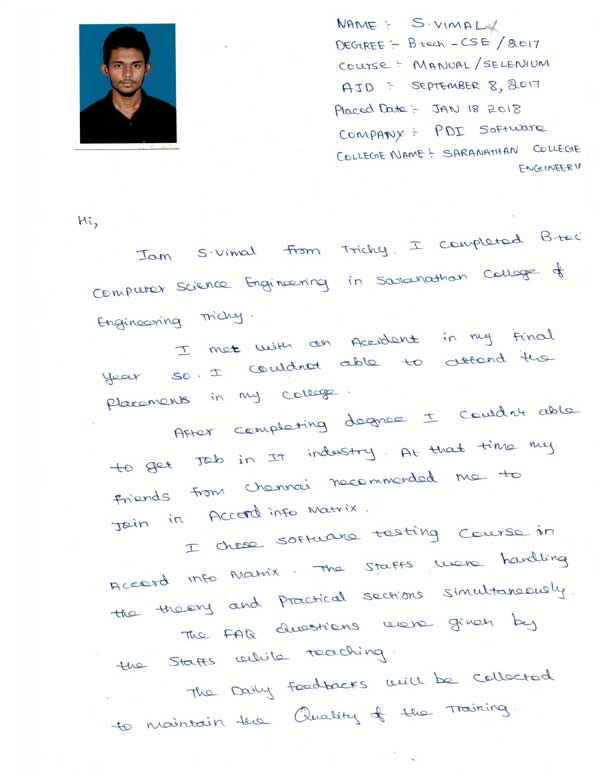 NAME :- S.VIMAL
DEGREE :- B.tech - CSE / 2017
Course :- MANUAL / SELENIUM
AJD :- SEPTEMBER 8, 2017
Placed Date :- JAN 18 2018
COMPANY :- PDI Software
COLLEGE NAME :- SARANATHAN COLLEGE
ENGINEERI
Hi,
Iam S.Vimal from Trichy. I completed B.tec
Computer Science Engineering in Saranathan College of
Engineering Trichy.
I met with an Accident in my Final
Year so. I couldnot able to attend the
Placements in my College.
After completing degree I couldn't able
to get Job in IT industry. At that time my
friends from Chennai recommended me to
Join in Accord info Matrix.
I chose software testing Course in
Accord info Matrix. The Staffs were handling
the theory and Practical sections simultaneously.
The FAQ Questions were given by
the Staffs while teaching.
The Daily feedbacks will be Collected
to maintain the Quality of the Training.